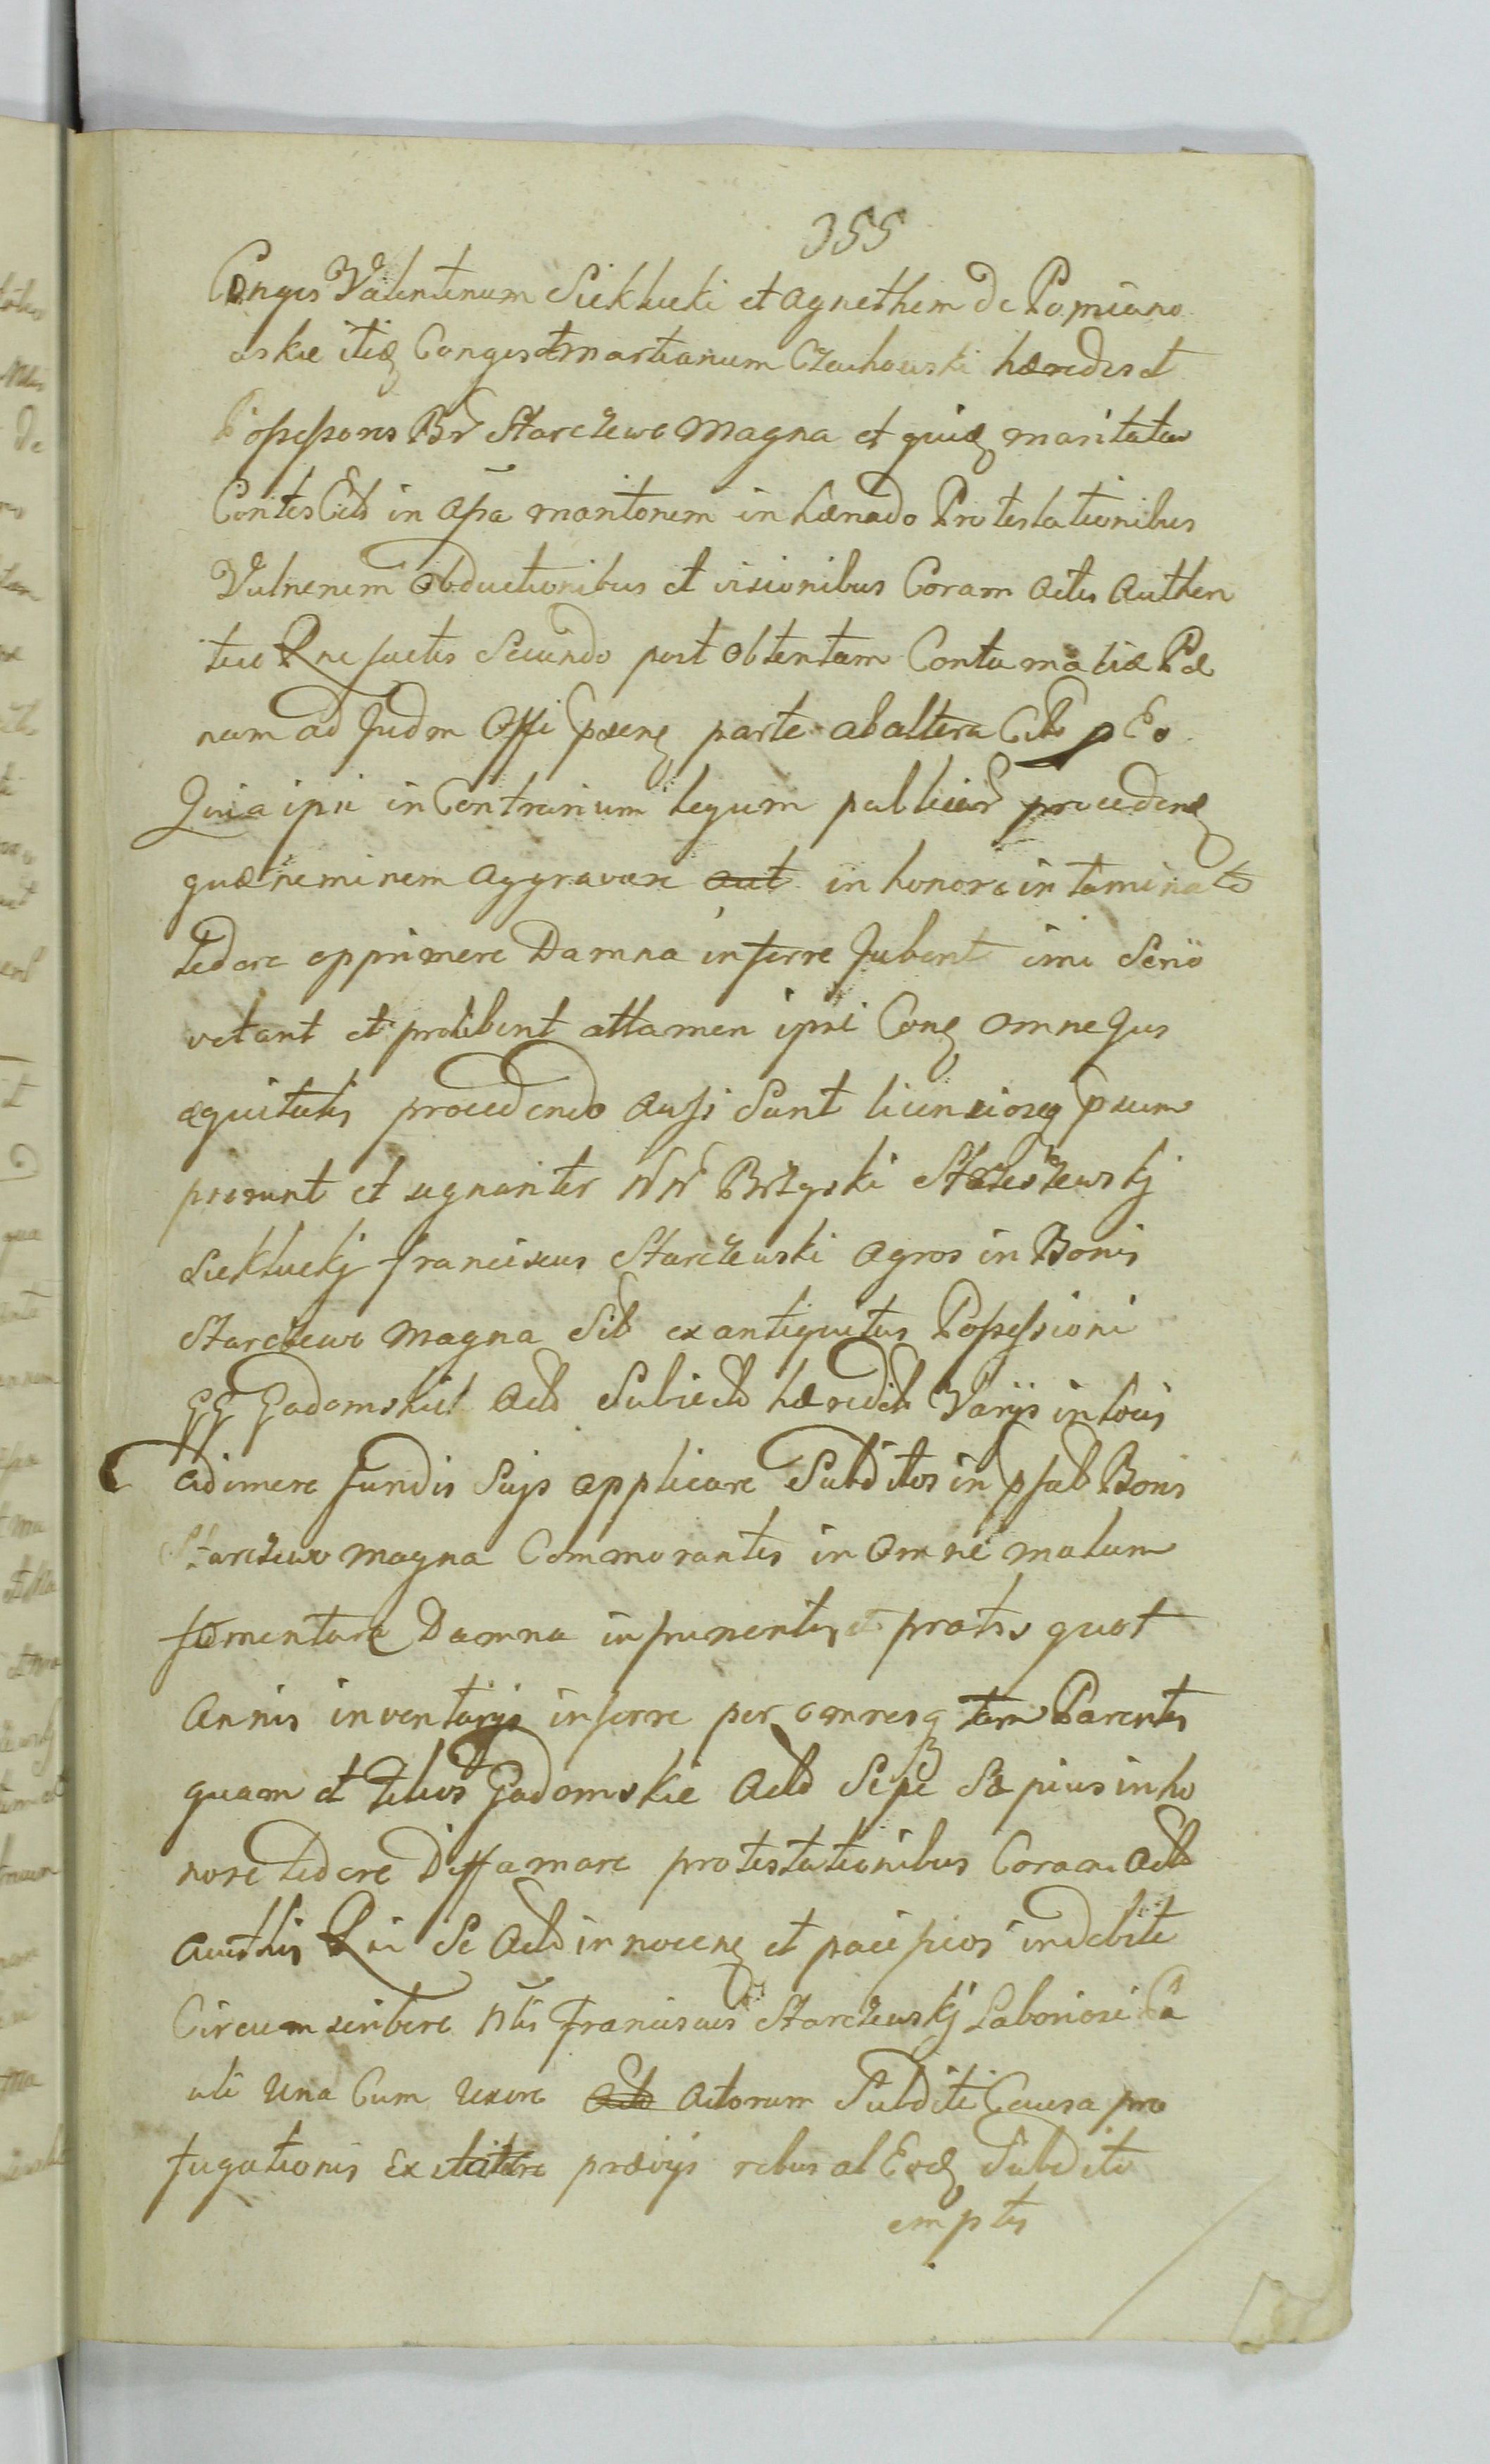 355
Conges Valentinum Siekłucki et Agnethem de Pomiano
wskie itiq Conges et Martianum Czachowski hæredes et
Possessores Br Starczewo Magna et quiq maritatew
Contes Citts in Assa mantonem inhærendo Protestationibus
Vulnerum Obductionibus et visionibus Coram Actis Authen
tico Rne factis Secundo post Obtentam Contumatiæ Pæ
nam ad Judm Offi pxenq parte ab altera Citts p Eo
Quia ipsi in Contrarium legum publicar procedenq
quæ neminem aggravare aut in honore intaminato
ledere opprimere Damna inferre Jubent imi Serio
vetant et prohibent attamen ipsi Conq omne Jus
æquitatis procedendo ausi Sunt licenciosq psum
pserunt et signanter NN Brzyski Starczewskj
Siekluckj Franciscus Starczewski Agros in Bonis
Starczewo Magna Sib ex antiquitus Possessioni
GG Gadomskich Actb Subiectb hæredit Varijs in locis
adimere fundis Sujs applicare Subditos in psatb Bonis
Starczewo Magna Commorantes in Omne malum
fomentare Damna in frumentis et pratis quot
Annis inventarijs inferre per omnesq tam Parentes
quam et filios Gadomskie Actb Sepe Sæpius in ho
nore ledere Diffamare protestationibus Coram Actb
Autthis Rni Se Actb innocenq et pacificos indebite
Circumscribere Nlis Franciscus Starczewskj Laboriosi Pa
uli una Cum Uxore Actb Actorum Subditi Causa pro
fugationis Excitatere prævijs rebus ab Eodq Subdito
emptis